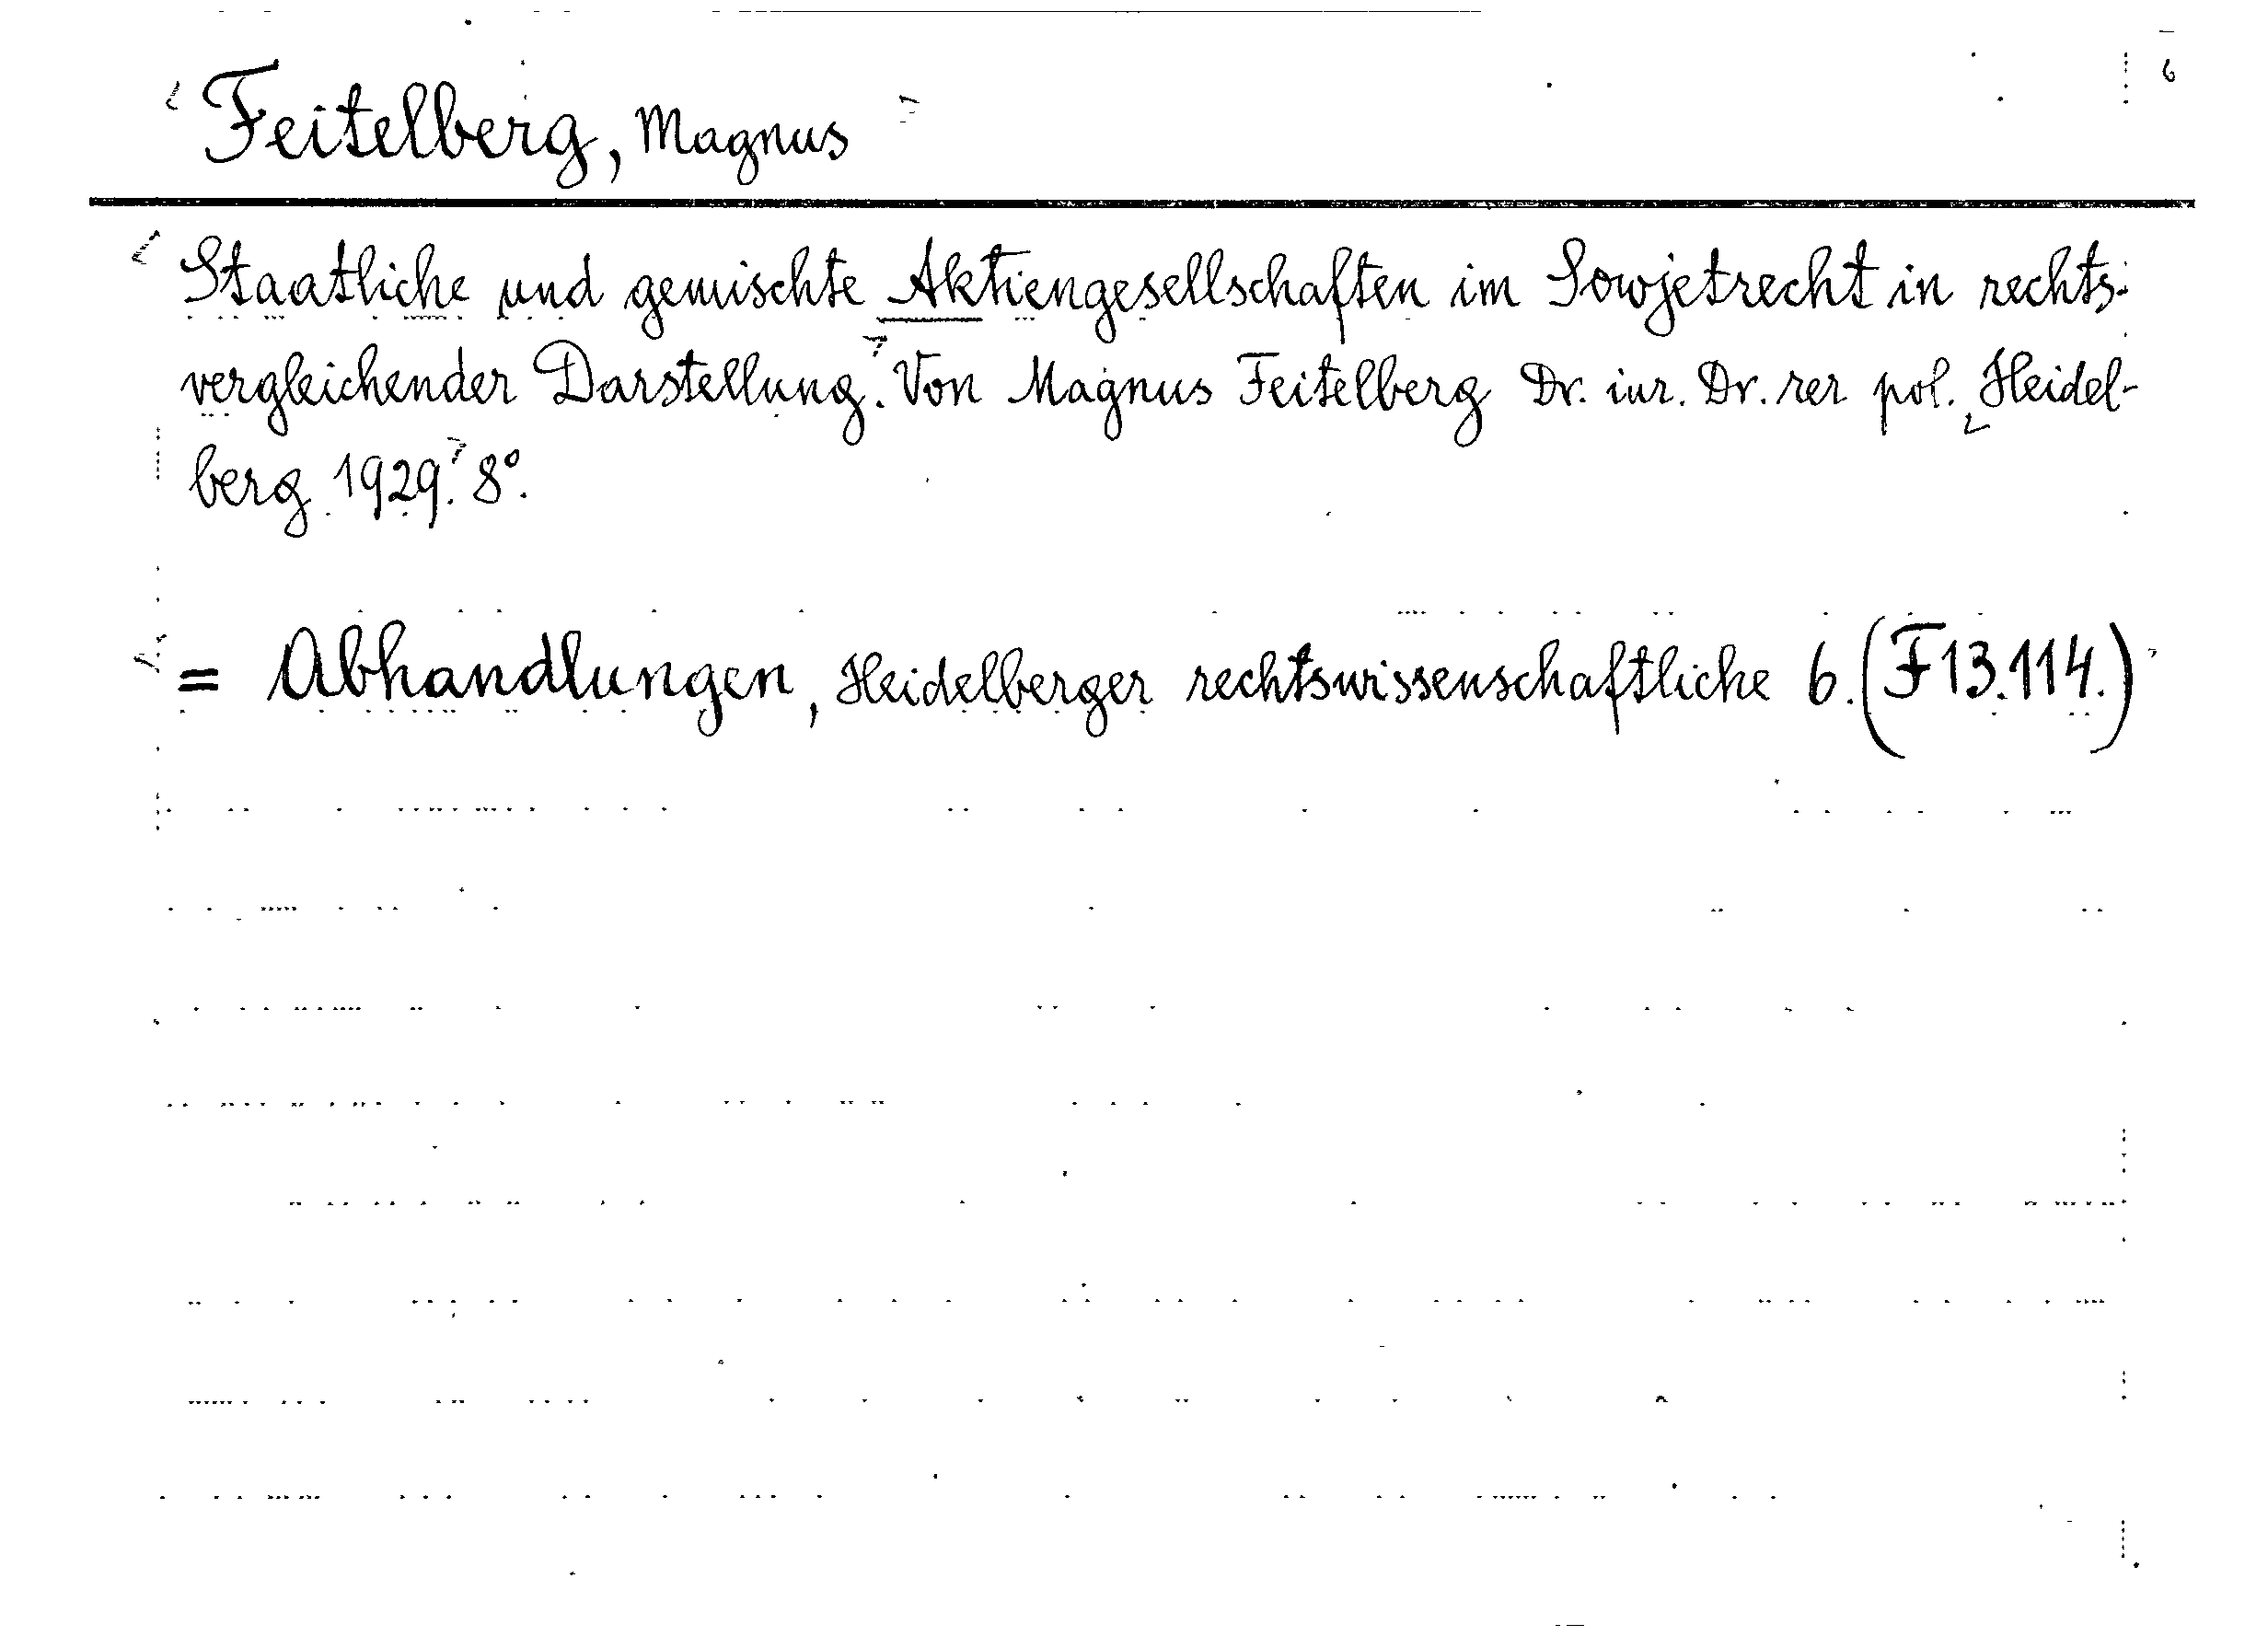 Feitelberg, Magnus
Staatliche und gemischte Aktiengesellschaften im Sowjetrecht in rechts-
vergleichender Darstellung. Von Magnus Feitelberg Dr. iur. Dr. rer pol. Heidel-
berg 1929. 8°.
= Abhandlungen, Heidelberger rechtswissenschaftliche 6. (F13.114.)